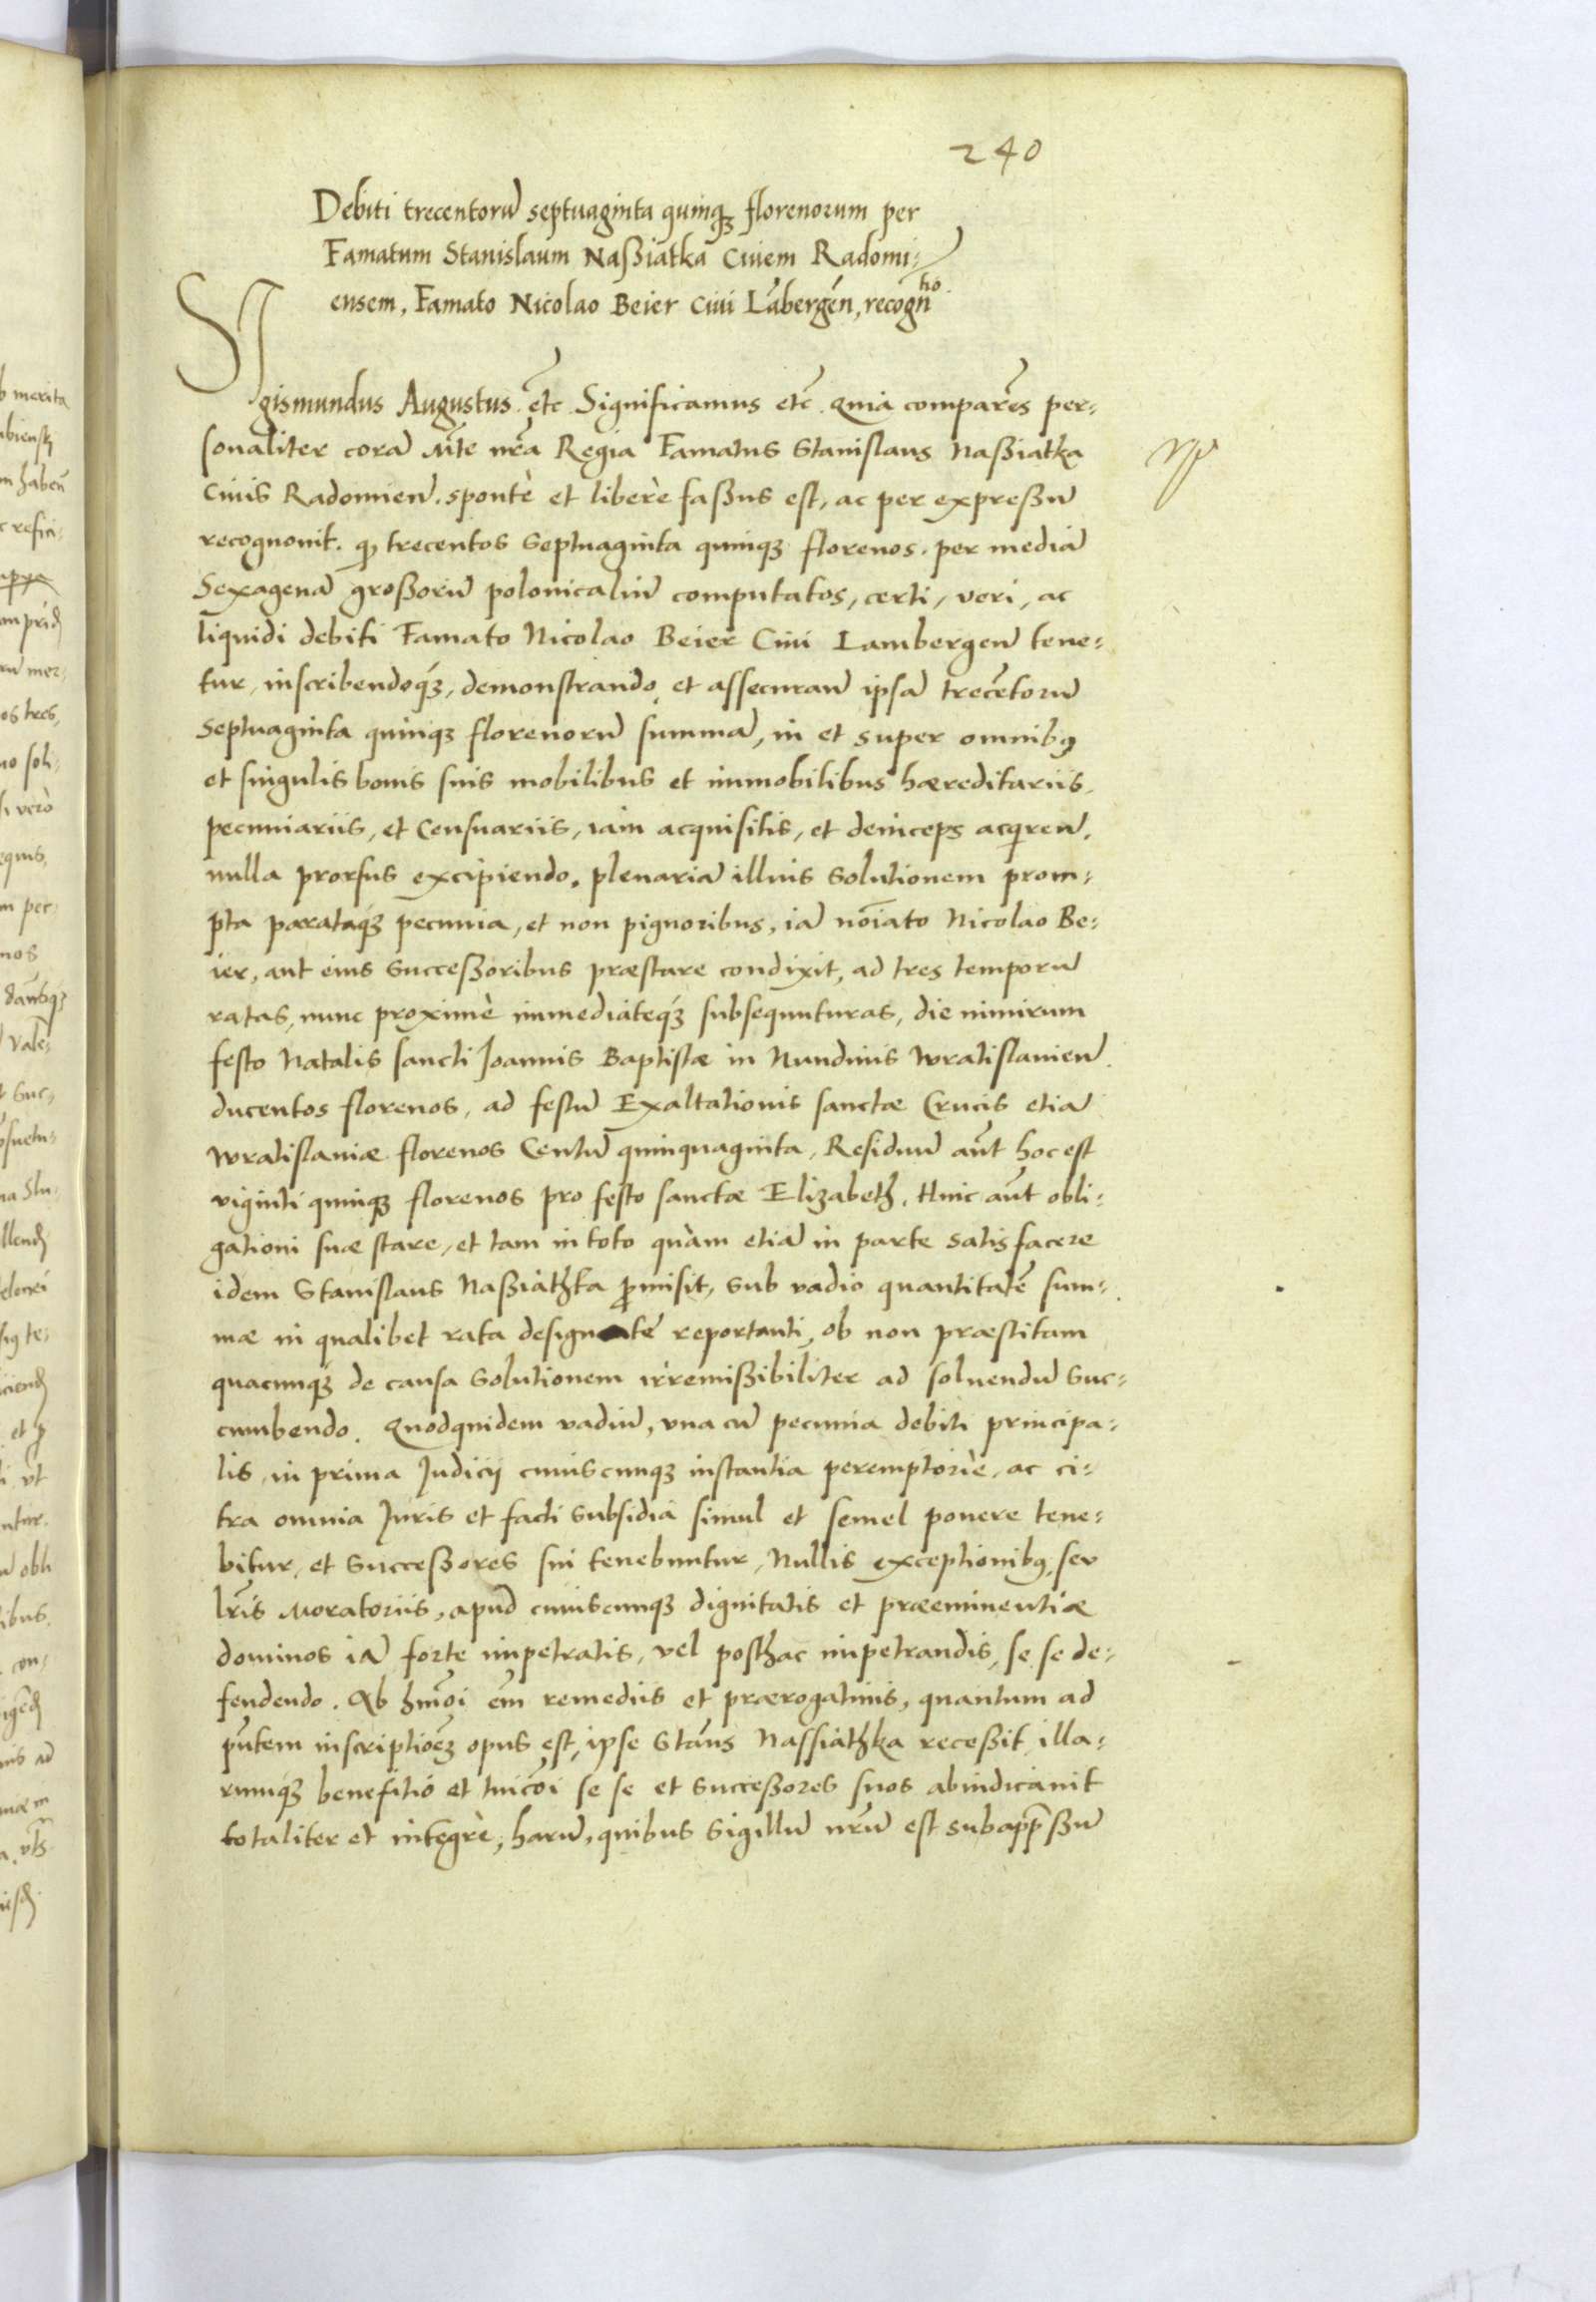 240
Debiti trecentorū septuaginta quinqꝫ florenorum per
Famatum Stanislaum Naßiatka Ciuem Radomi⸗
ensem, Famato Nicolao Beier Ciui Lābergēn, recognᵗⁱᵒ.
Sigismundus Augustus. etc̄ Significamus etc̄. Quia comparēs per⸗
sonaliter corā Mte nrā Regia Famatus Stanislaus Naßiatka
Ciuis Radomien̄. spontè et liberè faßus est, ac per expreßū
recognouit. ꝙ trecentos septuaginta quinqꝫ florenos. per mediā
Sexagenā großorū polonicaliū computatos, certi, veri, ac
liquidi debiti Famato Nicolao Beier Ciui Lambergen̄ tene⸗
tur, inscribendoqꝫ, demonstrando et assecuran̄ ipsā trecētorū
septuaginta quinqꝫ florenorū summā, in et super omnibꝰ
et singulis bonis suis mobilibus et immobilibus hæreditariis,
pecuniariis, et Censuariis, iam acquisitis, et deinceps acqiren̄,
nulla prorsus excipiendo. plenariā illius solutionem prom⸗
pta parataqꝫ pecunia, et non pignoribus, iā noīato Nicolao Be⸗
ier, aut eius Succeßoribus præstare condixit, ad tres temporū
ratas, nunc proximè immediateqꝫ subsequuturas, die nimirum
festo Natalis sancti Joannis Baptistæ in Nundinis Wratislauien̄.
ducentos florenos, ad festū Exaltationis sanctæ Crucis etiā
Wratislauiæ florenos Centū quinquaginta, Residuū aūt hoc est
viginti quinqꝫ florenos pro festo sanctæ Elizabeth. Huic aūt obli⸗
gationi suæ stare, et tam in toto quàm etiā in parte satisfacere
idem Stanislaus Naßiathka ꝓmisit, sub vadio quantitatē sum⸗
mæ in qualibet rata designatē reportanti, ob non præstitam
quacunqꝫ de causa solutionem irremißibiliter ad soluendū suc⸗
cumbendo. Quodquidem vadiū, vna cū pecunia debiti principa⸗
lis, in prima Judicij cuiuscunqꝫ instantia peremptoriè, ac ci⸗
tra omnia Juris et facti subsidia simul et semel ponere tene⸗
bitur, et Succeßores sui tenebuntur, Nullis exceptionibꝰ, seu
lr̄is Moratoriis, apud cuiuscunqꝫ dignitatis et præeminentiæ
dominos iā forte impetratis, vel posthac impetrandis, se se de⸗
fendendo. Ab hm̄oi em̄ remediis et prærogatiuis, quantum ad
pn̄tem inscriptioēꝫ opus est, ipse Stāus Nassiathka receßit, illa⸗
rumqꝫ benefitio et tuicōi se se et Succeßores suos abiudicauit
totaliter et integrè, harū, quibus Sigillū nr̄ū est subapp̄ßū